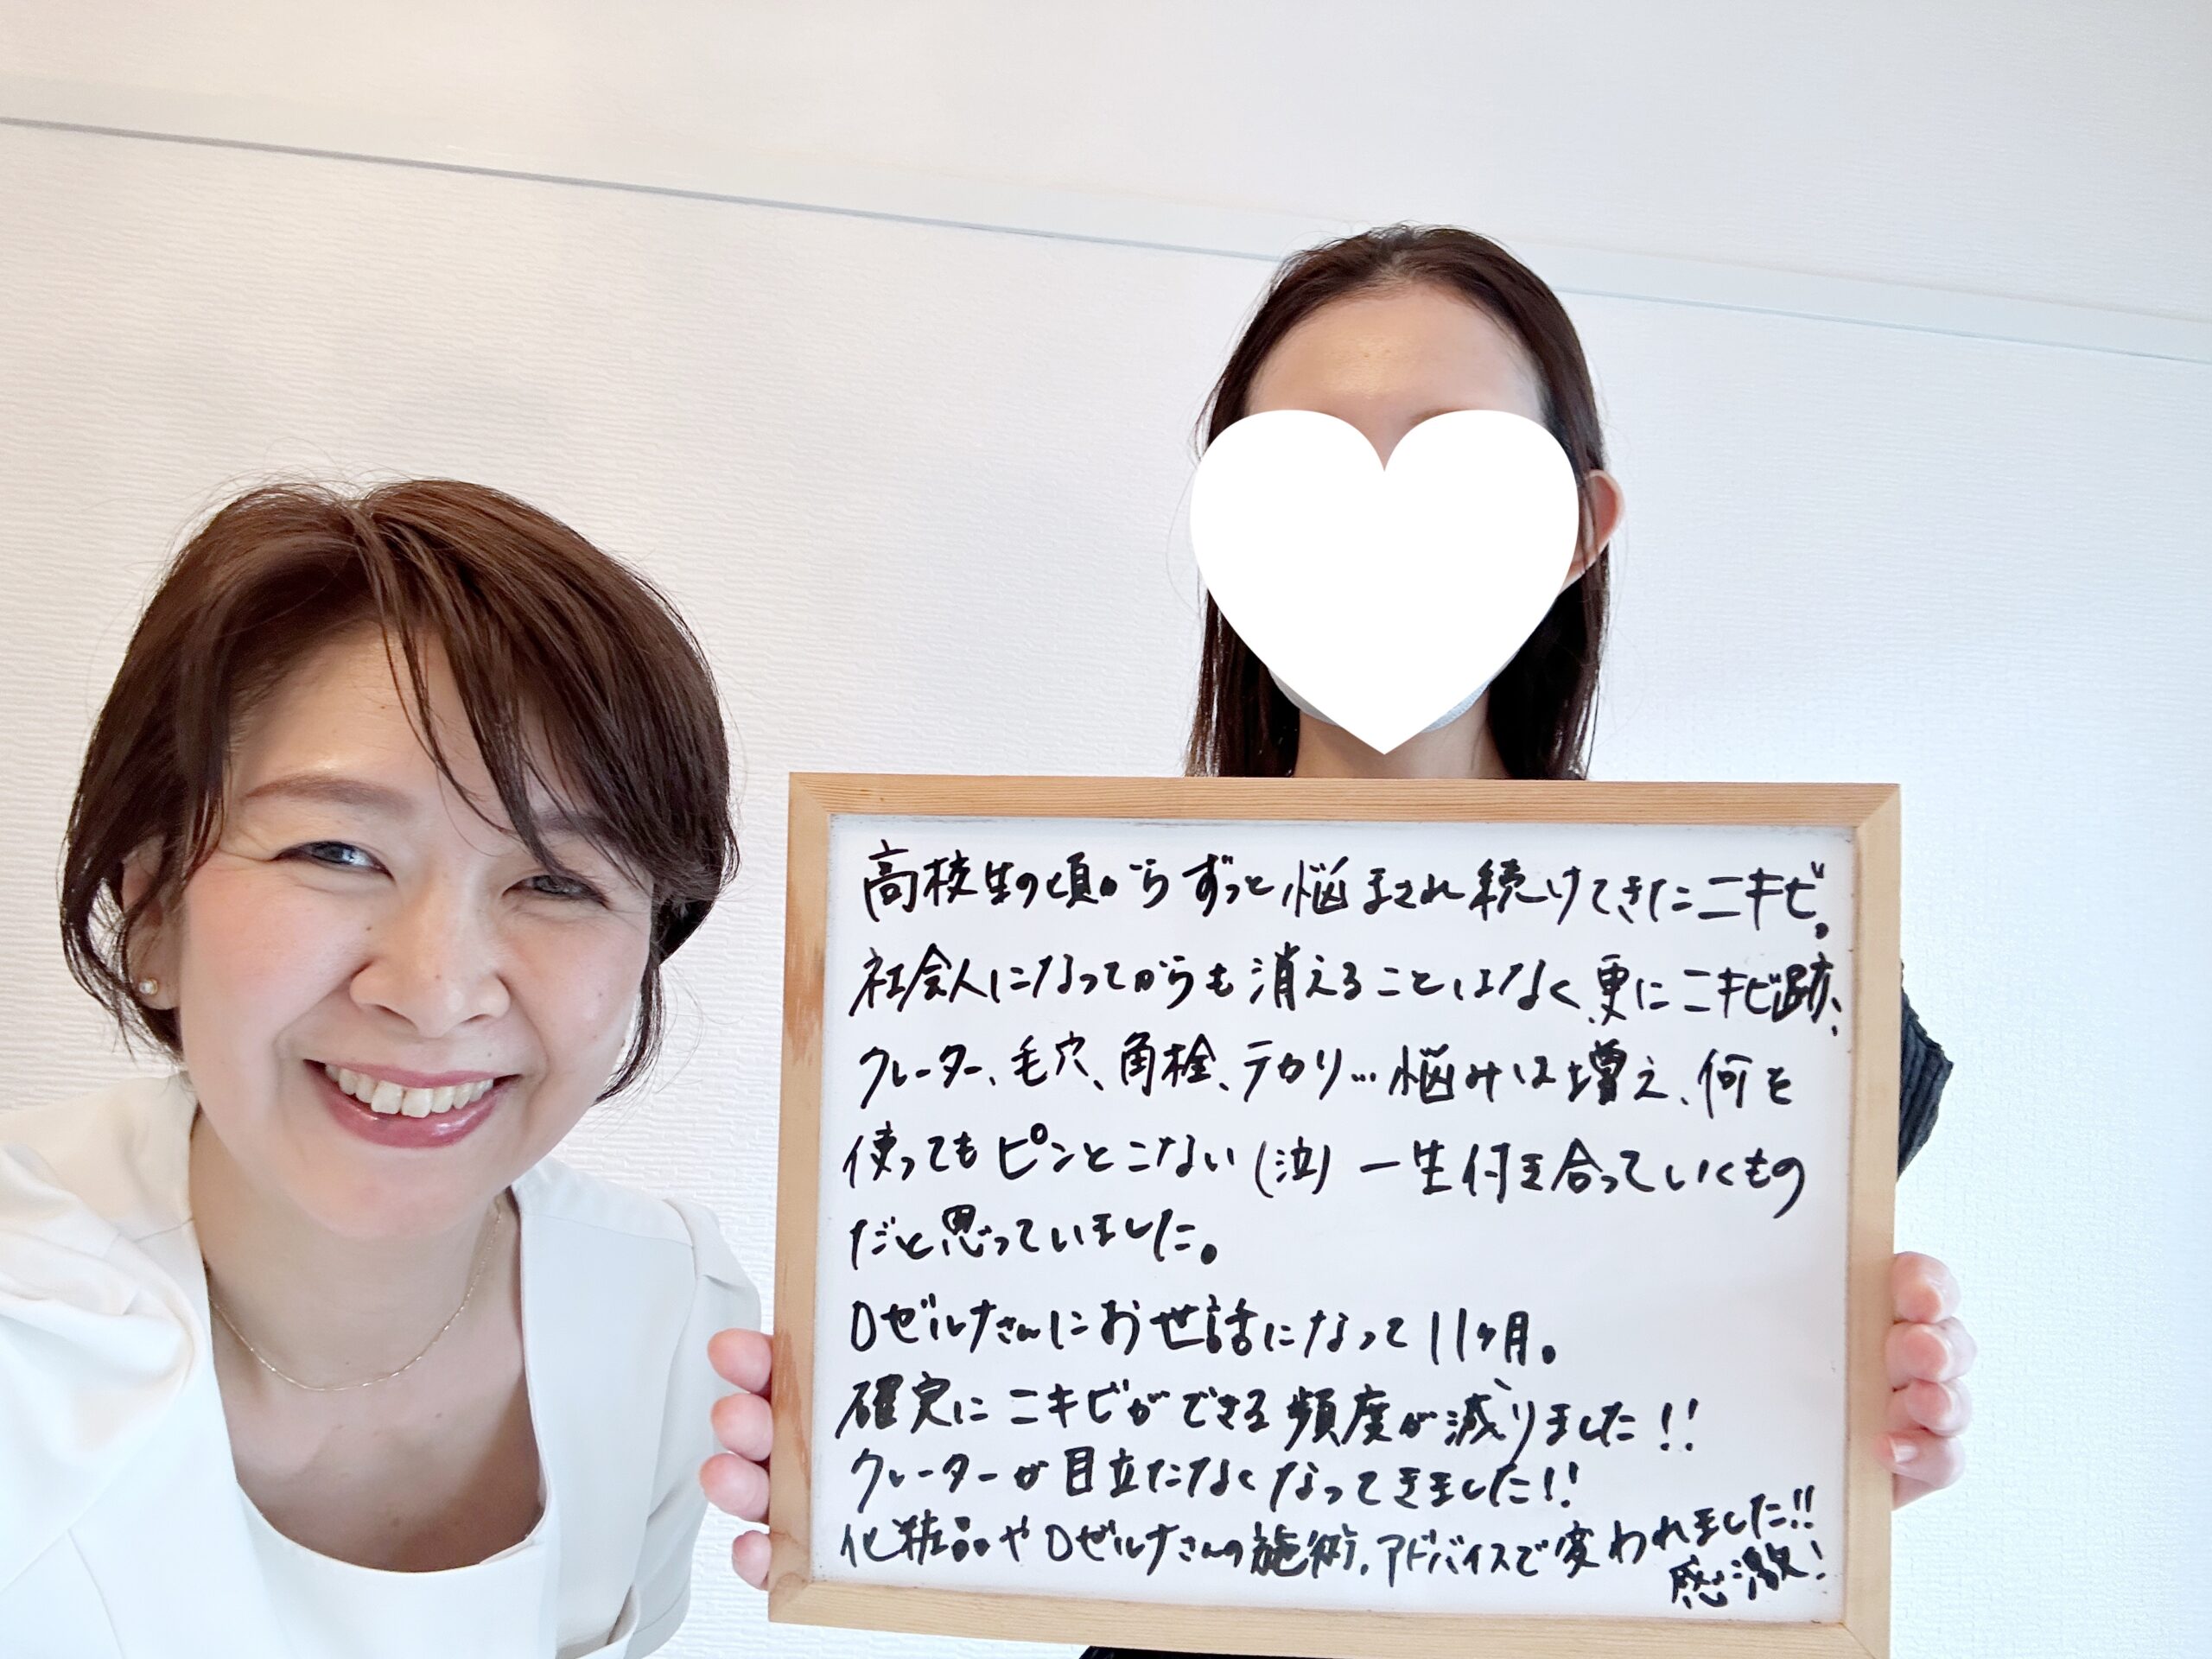 高校生の頃からずっと悩まされ続けてきたニキビ。
社会人になってからも消えることはなく、更にニキビ跡、
クレーター、毛穴、角栓、テカリ…悩みは増え、何を
使ってもピンとこない(泣) 一生付き合っていくもの
だと思っていました。
Dゼルナさんにお世話になって11ヶ月。
確実にニキビができる頻度が減りました!!
クレーターが目立たなくなってきました!!
化粧品やDゼルナさんの施術、アドバイスで変われました!!
感激!